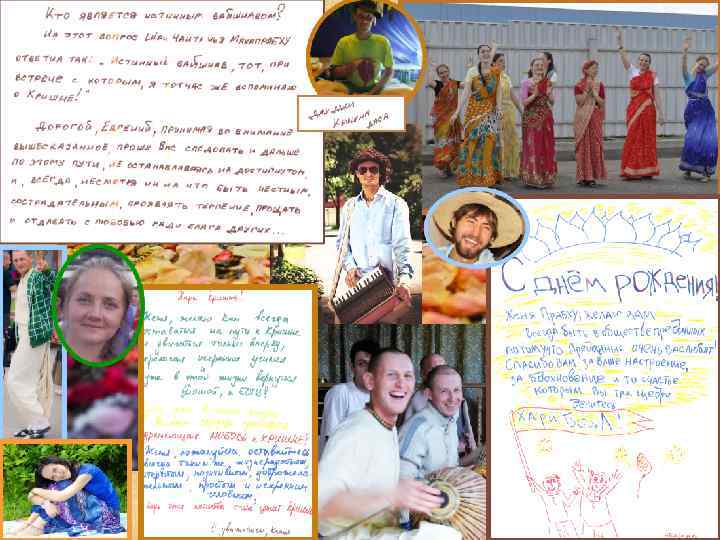 Кто является истинным вайшнавом?
На этот вопрос Чайтанья Махапрабху
ответил так: „Истинный вайшнав, тот, при
встрече с которым, я тотчас же вспоминаю
о Кришне!"
Дорогой, Евгений, принимая во внимание
вышесказанное, прошу Вас следовать и дальше
по этому пути, не останавливаясь на достигнутом,
и, всегда, несмотря ни на что быть честным,
сострадательным, проявлять терпение, прощать
и отдавать с любовью ради блага других...
Кришна
даса
С днём рождения!
Женя Прабху, желаю вам
всегда быть в обществе преданных
потому что преданные очень вас любят!
Спасибо вам за ваше настроение,
за вдохновение и то счастье
которым вы так щедро
делитесь
Хари Бол!
Харе Кришна!
Женя, желаю Вам всегда
оставаться на пути к Кришне
и двигаться только вперёд,
искренние усилия
уже в этой жизни вернуться
домой, к Богу!
драгоценную любовь к Кришне!
Женя, пожалуйста, оставайтесь
всегда таким же жизнерадостным,
открытым, позитивным,
простым и искренним
С уважением,